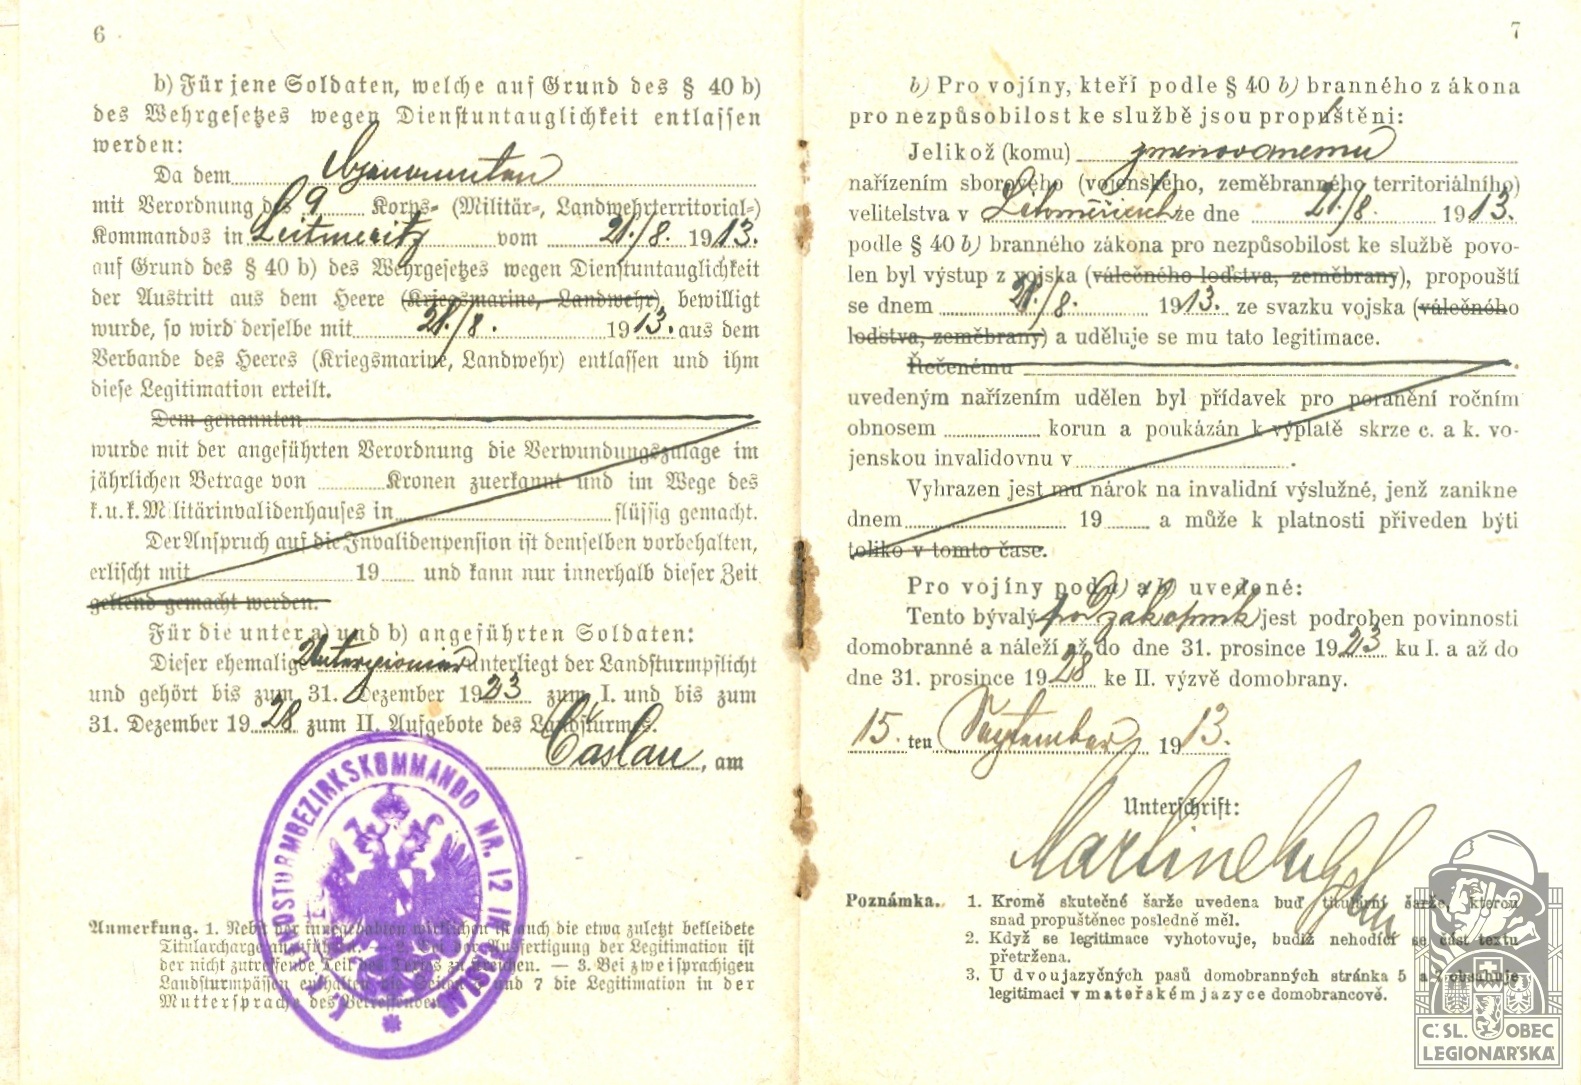 6
b) Für jene Soldaten, welche auf Grund des § 40 b)
des Wehrgesetzes wegen Dienstuntauglichkeit entlassen
werden:
Da dem Ogenannnten
mit Verordnung des 9 Korps- (Militär-, Landwehrterritorial-)
Kommandos in Leitmeritz vom 21./8. 1913.
auf Grund des § 40 b) des Wehrgesetzes wegen Dienstuntauglichkeit
der Austritt aus dem Heere (Kriegsmarine, Landwehr), bewilligt
wurde, so wird derselbe mit 21./8. 1913. aus dem
Verbande des Heeres (Kriegsmarine, Landwehr) entlassen und ihm
diese Legitimation erteilt.
Dem genannten
wurde mit der angeführten Verordnung die Verwundungszulage im
jährlichen Betrage von Kronen zuerkannt und im Wege des
k. u. k. Militärinvalidenhauses in flüssig gemacht.
Der Anspruch auf die Invalidenpension ist demselben vorbehalten,
erlischt mit 19 und kann nur innerhalb dieser Zeit
geltend gemacht werden.
Für die unter a) und b) angeführten Soldaten:
Dieser ehemalige Unterpionier unterliegt der Landsturmpflicht
und gehört bis zum 31. Dezember 1923 zum I. und bis zum
31. Dezember 1928 zum II. Aufgebote des Landsturmes.
Čáslau, am
K. K. LANDSTURMBEZIRKSKOMMANDO NR. 12 IN ČASLAU
Anmerkung. 1. Nebst der innegehabten wirklichen ist auch die etwa zuletzt bekleidete
Titularcharge anzuführen. — 2. Bei der Ausfertigung der Legitimation ist
der nicht zutreffende Teil des Textes zu streichen. — 3. Bei zweisprachigen
Landsturmpässen enthalten die Seiten 5 und 7 die Legitimation in der
Muttersprache des Betreffenden.
7
b) Pro vojíny, kteří podle § 40 b) branného zákona
pro nezpůsobilost ke službě jsou propuštěni:
Jelikož (komu) jmenovanemu
nařízením sborového (vojenského, zeměbranného territoriálního)
velitelstva v Litoměřicích ze dne 21./8. 1913.
podle § 40 b) branného zákona pro nezpůsobilost ke službě povo-
len byl výstup z vojska (válečného loďstva, zeměbrany), propouští
se dnem 21./8. 1913. ze svazku vojska (válečného
loďstva, zeměbrany) a uděluje se mu tato legitimace.
Řečenému
uvedeným nařízením udělen byl přídavek pro poranění ročním
obnosem korun a poukázán k výplatě skrze c. a k. vo-
jenskou invalidovnu v .
Vyhrazen jest mu nárok na invalidní výslužné, jenž zanikne
dnem 19 a může k platnosti přiveden býti
toliko v tomto čase.
Pro vojíny pod a) a b) uvedené:
Tento bývalý podzákopník jest podroben povinnosti
domobranné a náleží až do dne 31. prosince 1923 ku I. a až do
dne 31. prosince 1928 ke II. výzvě domobrany.
15. ten September 1913.
Unterschrift:
Poznámka. 1. Kromě skutečné šarže uvedena buď titulární šarže, kterou
snad propuštěnec posledně měl.
2. Když se legitimace vyhotovuje, budiž nehodící se část textu
přetržena.
3. U dvoujazyčných pasů domobranných stránka 5 a 7 obsahuje
legitimaci v mateřském jazyce domobrancově.
Č. SL. OBEC
LEGIONÁŘSKÁ